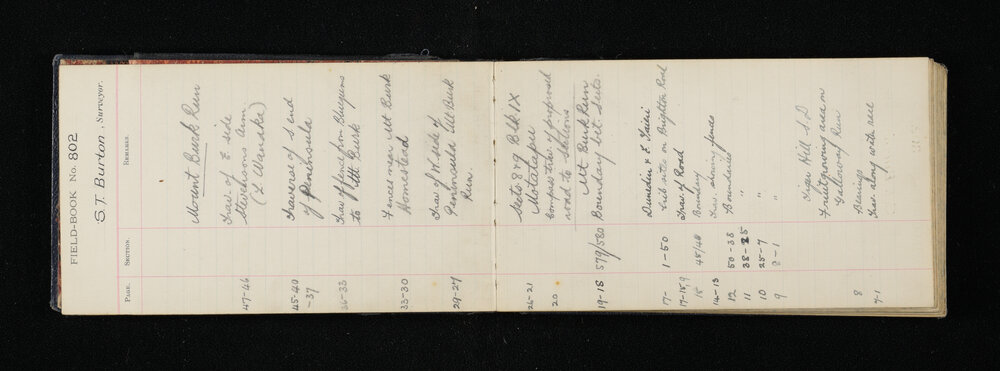 FIELD-BOOK No. 802
S.T. Burton, Surveyor.
PAGE. SECTION. REMARKS.
Mount Burk Run
47-46 Trav. of E side
Stevensons Arm
(L Wanaka)
45-40 Traverse of S. end
-37 of Peninsula
36-33 Trav of fence from Bluegums
to Mt Burk
33-30 Fences near Mt Burk
Homestead
29-27 Trav of W. side of
Peninsula Mt Burk
Run
26-21 Sects 8 & 9 Blk IX
Motatapu
20 Compass trav. of proposed
road to
Mt Burk Run
19-18 579/580 Boundary bet. Sects.
Dunedin & E Taieri
17- 1-50 Crib sites on Brighton Road
17-15 Trav. of Road
15 45/48 Boundary
14-13 Trav. showing fences
12 50-38 Boundaries
11 38-25 "
10 25-7 "
9 8-1 "
Tiger Hill S.D
Fruitgrowing area on
Galloway Run
8 Bearings
7-1 Trav. along with race